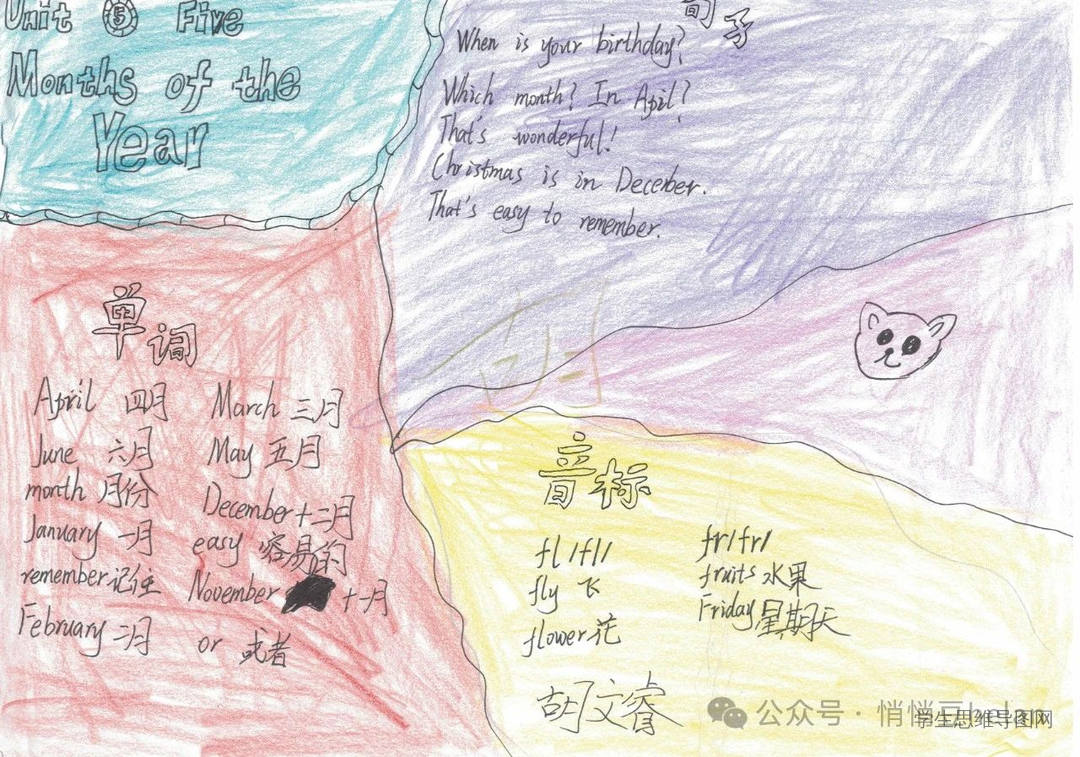 Unit 5 Five
Months of the
Year
句子
When is your birthday?
Which month? In April?
That's wonderful!
Christmas is in Deceber.
That's easy to remember.
单词
April 四月
June 六月
month 月份
January 一月
remember 记住
February 二月
March 三月
May 五月
December 十二月
easy 容易的
November 十一月
or 或者
音标
fl /fl/
fly 飞
flower 花
fr/fr/
fruits 水果
Friday 星期天
胡文睿
公众号 · 悄悄
学生思维导图网